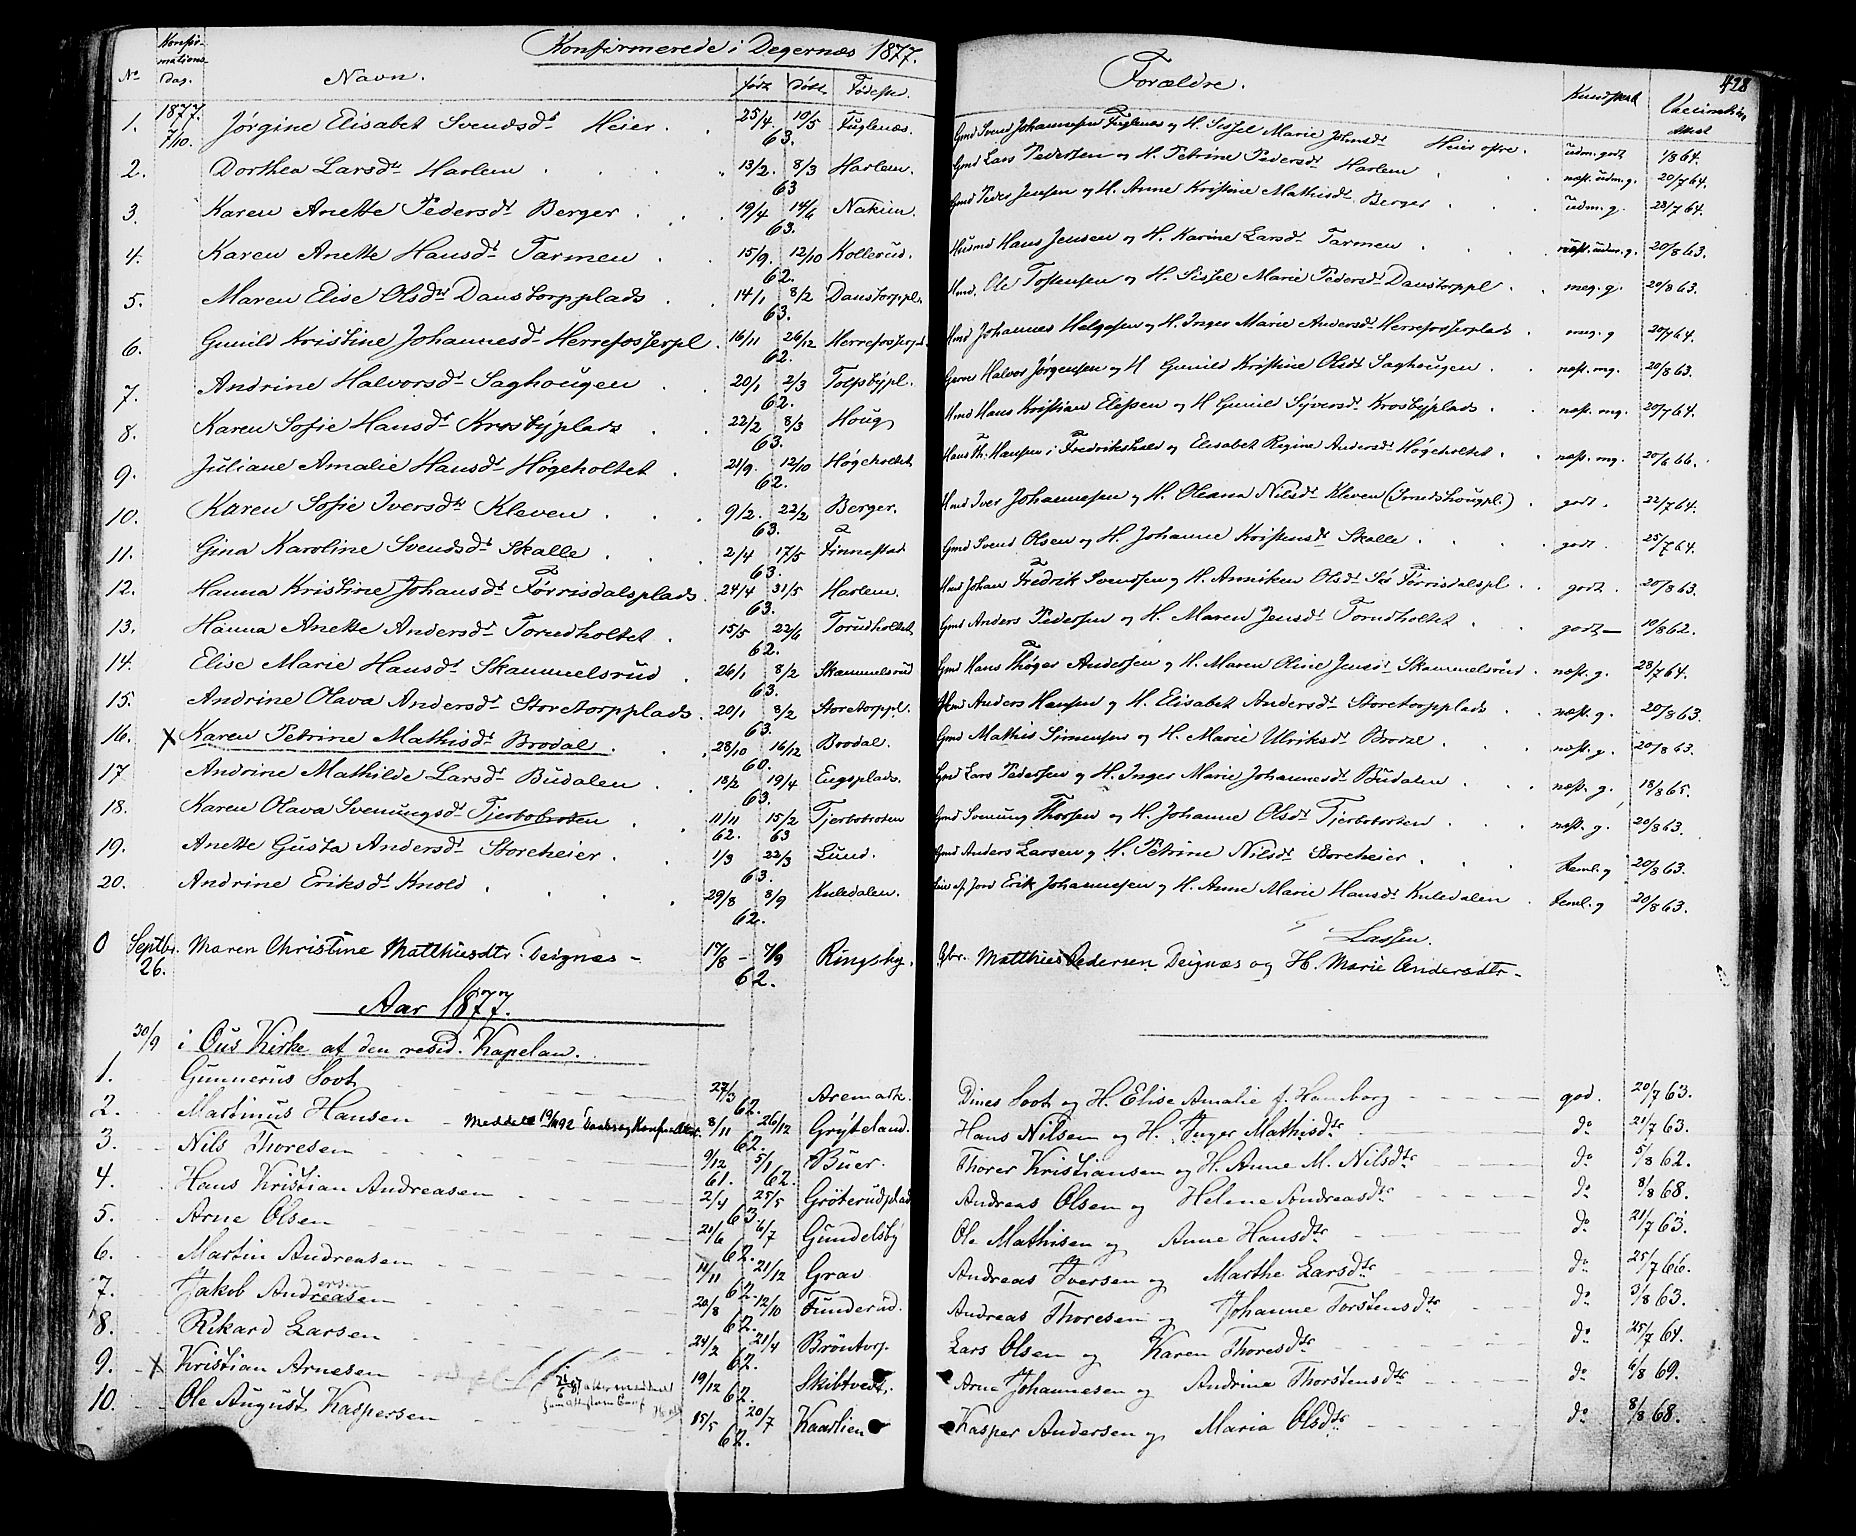 Konfirmerede i Degernæs 1877. Forældre. 428
No Konfirmations Dag. Navn. født døbt Fødested. Kundskab Vaccination Attest
1. 1877. 7/10. Jørgine Elisabet Svendsdt Heier. 25/4 10/5 63. Fuglenæs. Gmd Svend Johannesen Fuglenæs og H. Sissel Marie Johnsdt Heier østre. udm. godt 1/8 64.
2. Dorthea Larsdt Harlem 13/2. 8/3 63 Harlem. Gmd Lars Pedersen og H. Petrine Pedersdt Harlem næst. udm. g. 20/7 64.
3. Karen Anette Pedersdt Berger 19/4 14/6 63. Nakim. Gmd Peder Jensen og H. Anne Kristine Mathisdt Berger udm. g. 28/7 64.
4. Karen Anette Hansdt Tarmen 15/9. 12/10 62. Kollerud. Husmd Hans Jensen og H. Karine Larsdt Tarmen næst. udm. g. 20/8 63.
5. Maren Elise Olsdtr Danstorpplads 14/1 8/2 63. Danstorppl. Hmd. Ole Tostensen og H. Sissel Marie Pedersdt Danstorppl. meg. g. 20/8 63.
6. Gunild Kristine Johannesdt Herrefosserpl. 16/11 26/12 62. Herrefosserpl. Hmd Johannes Helgesen og H. Inger Marie Andersdt Herrefosserplads mg. g 20/7 64.
7. Andrine Halvorsdt Saghougen 20/1 2/3 62. Tolfsbypl. Halvor Jørgensen og H Gunild Kristine Olsdt Saghougen næst. mg. 20/8 63.
8. Karen Sofie Hansdt Krosbyplads 22/2 8/3 63. Houg Hmd Hans Kristian Elefsen og H Gunild Syversdt Krosbyplads næst. mg. 20/7 64.
9. Juliane Amalie Hansdt Høgeholtet 21/9. 12/10 62. Høgeholtet Hans Th. Hansen i Fredrikshald og Elisabet Regine Andersdt Høgeholtet næst. mg. 20/6 66.
10. Karen Sofie Iversdt Kleven 9/2. 22/2 63. Berger. Hmd Iver Johannesen og H. Oleana Nilsdt Kleven godt. 22/7 64.
11. Gina Karoline Svendsdt Skalle 2/4 17/5 63. Finnestad Gmd Svend Olsen og H. Johanne Kristensdt Skalle godt. 25/7 64.
12. Hanna Kristine Johansdt Førrisdalsplads 24/4 31/5 63. Harlem. Hmd Johan Fredrik Svensen og H. Anniken Olsdt Sør Førrisdalspl. godt. 20/8 63.
13. Hanna Anette Andersdt Torudholtet 15/5 22/6 62. Torudholtet Gmd Anders Pedersen og H. Maren Jensdt Torudholtet godt 10/8 62.
14. Elise Marie Hansdt Skammelsrud 26/1 8/2 63. Skammelsrud Gmd Hans Thøger Andersen og H. Maren Oline Jensdt Skammelsrud næst. g. 28/7 64.
15. Andrine Olava Andersdt Storetorpplads. 20/1 8/2 63. Storetorppl. Hmd Anders Hansen og H. Elisabet Andersdt Storetorpplads næst. g. 20/8 63.
16. X Karen Petrine Mathisdt Brodal 28/10 16/12 60. Brodal. Gmd Mathis Simensen og H. Marie Ulriksdt Brodal næst. g. 20/8 63.
17 Andrine Mathilde Larsdt Budalen 18/2 19/4 63. Engsplads. Gmd Lars Pedersen og H. Inger Marie Johannesdt Budalen næst. g. 18/8 65.
18. Karen Olava Svenungsdt Tjerbobroten 11/11 62. 15/2 63 Tjerbobroten Gmd Svenung Thorsen og H. Johanne Olsdt Tjerbobroten næst. g. 20/8 63.
19. Anette Gusta Andersdt Storeheier 1/3 22/3 63. Lund. Gmd Anders Larsen og H. Petrine Nilsdt Storeheier teml. g 20/8 63.
20. Andrine Eriksdt Knold 29/8 8/9 62. Kuledalen. Erik Johannesen og H. Anne Marie Hansdt Kuledalen teml. g 20/8 63.
Lassen.
0 Septbr. 26. Maren Christine Matthiasdtr. Deignæs 17/8 - 7/9 62. Ringsby. Gbr. Matthias Pedersen Deignæs og H. Marie Andersdtr
Aar 1877.
30/9 i Øus Kirke af den resid. Kapelan.
1. Gunnerus Soot 27/3 62. Aremark. Dines Soot og H. Elise Amalie f. Hamborg god. 20/7 63.
2. Martinus Hansen Meddelt 19/4 92 8/11 26/12 62. Gryteland. Hans Nilsen og H. Inger Mathisdtr do 21/7 63.
3. Nils Thoresen 9/12 61. 5/1 62. Buer. Thorer Kristiansen og H. Anne M. Nilsdtr do 5/8 62.
4. Hans Kristian Andreasen 2/4 25/5 63. Grøterudplads Andreas Olsen og Helene Andreasdtr do 8/8 68.
5. Arne Olsen 24/6 6/7 62. Gundelsby Ole Mathisen og Anne Hansdtr do 21/7 63.
6. Martin Andreasen 11/11 21/12 62. Grav Andreas Iversen og Marthe Larsdtr do 25/7 66.
7. Jakob Andreasen ersen 20/8 12/10 62. Funderud. Andreas Thoresen og Johanne Torstensdtr do 3/8 63.
8. Rikard Larsen 24/2 21/4 62. Bröntorp. Lars Olsen og Karen Thoresdtr do 25/7 64.
9. X Kristian Arnesen 19/12 62. Skibtvedt. Arne Johannesen og Andrina Thorstensdtr do 6/8 69.
10. Ole August Kaspersen 25/5 20/7 62. Kaaslien Kasper Andersen og Maria Olsdtr do 8/8 68.